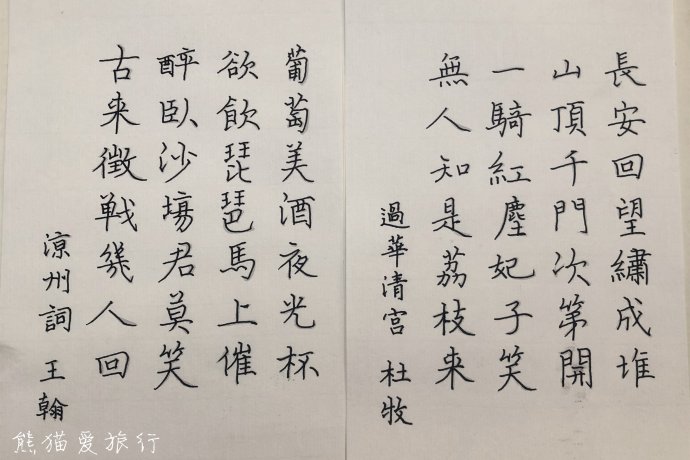 長安回望繡成堆
山頂千門次第開
一騎紅塵妃子笑
無人知是荔枝来
過華清宮 杜牧
葡萄美酒夜光杯
欲飲琵琶馬上催
醉臥沙場君莫笑
古来徵戦幾人回
涼州詞 王翰
熊猫爱旅行